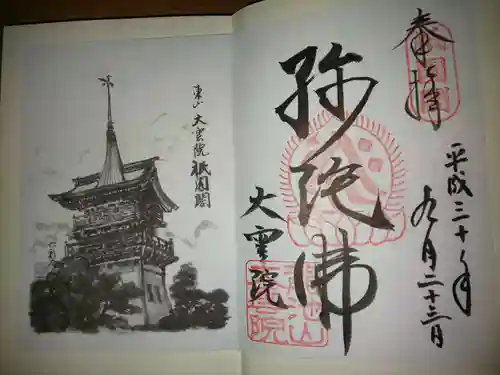 奉拝
平成三十年
九月二十三日
弥陀佛
大雲院
東山 大雲院 祇園閣